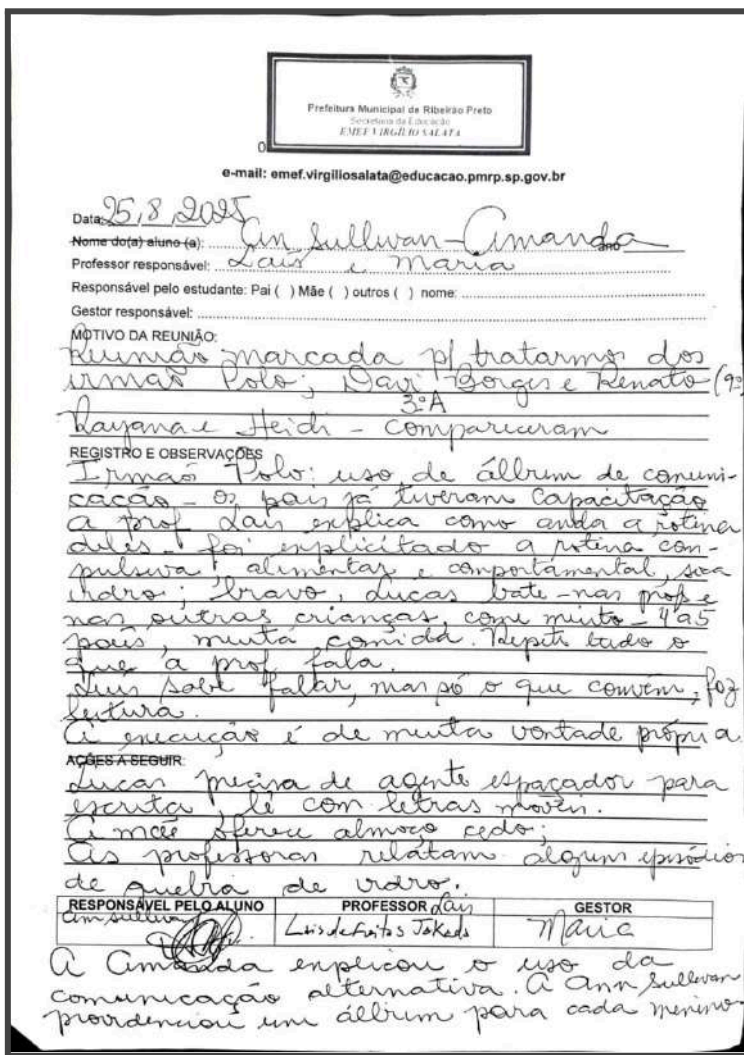 Prefeitura Municipal de Ribeirão Preto
Secretaria da Educação
EMEF VIRGÍLIO SALATA
0
e-mail: emef.virgiliosalata@educacao.pmrp.sp.gov.br
Data: 25, 8, 2025
Nome do(a) aluno (a): Ann Sullivan - Amanda ano
Professor responsável: Laís e Maria
Responsável pelo estudante: Pai ( ) Mãe ( ) outros ( ) nome:
Gestor responsável:
MOTIVO DA REUNIÃO:
Reunião marcada p/ tratarmos dos
irmão Polo; Davi Borges e Renato (9º
3ºA
Rayana e Heidi - compareceram
REGISTRO E OBSERVAÇÕES
Irmão Polo: uso de állbum de comuni-
cação - os pais já tiveram capacitação
a prof Laís explica como anda a rotina
deles - foi explicitado a rotina com-
pulsiva, alimentar e comportamental,
vidro; bravo, Lucas bate - nas profs e
nas outras crianças, come muito - 4 a 5
pães, muita comida. Repete tudo o
que a prof fala.
Luís sabe falar, mas só o que convém, faz
leitura.
A execução é de muita vontade própria
AÇÕES A SEGUIR:
Lucas precisa de agente espaçador para
escrita, lê com letras móveis.
A mãe oferece almoço cedo;
As professoras relatam alguns episódios
de quebra de vidro.
RESPONSÁVEL PELO ALUNO PROFESSOR Laís GESTOR
Ann Sullivan Laís de Freitas Maria
A Amanda explicou o uso da
comunicação alternativa. A Ann Sullivan
providenciou um állbum para cada menino